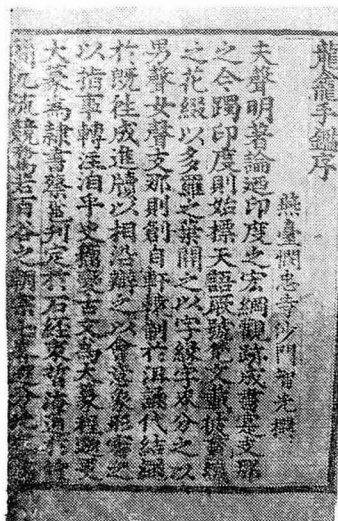 龍龕手鑑序
燕臺憫忠寺沙門智光撰
夫聲明著論迺印度之宏綱觀跡成書寔支那
之令躅印度則始標天語厥號梵文載彼貝編
之花綴以多羅之葉開之以字緣字界分之以
男聲女聲支那則創自軒轅制於沮誦代結繩
於既往成進牘以相沿辯之以會意象形審之
以指事轉注洎乎史籀變古文為大篆程邈變
大篆為隸書蔡邕刊定於石經束晳海通於竹
簡九流競騖若百谷之朝宗